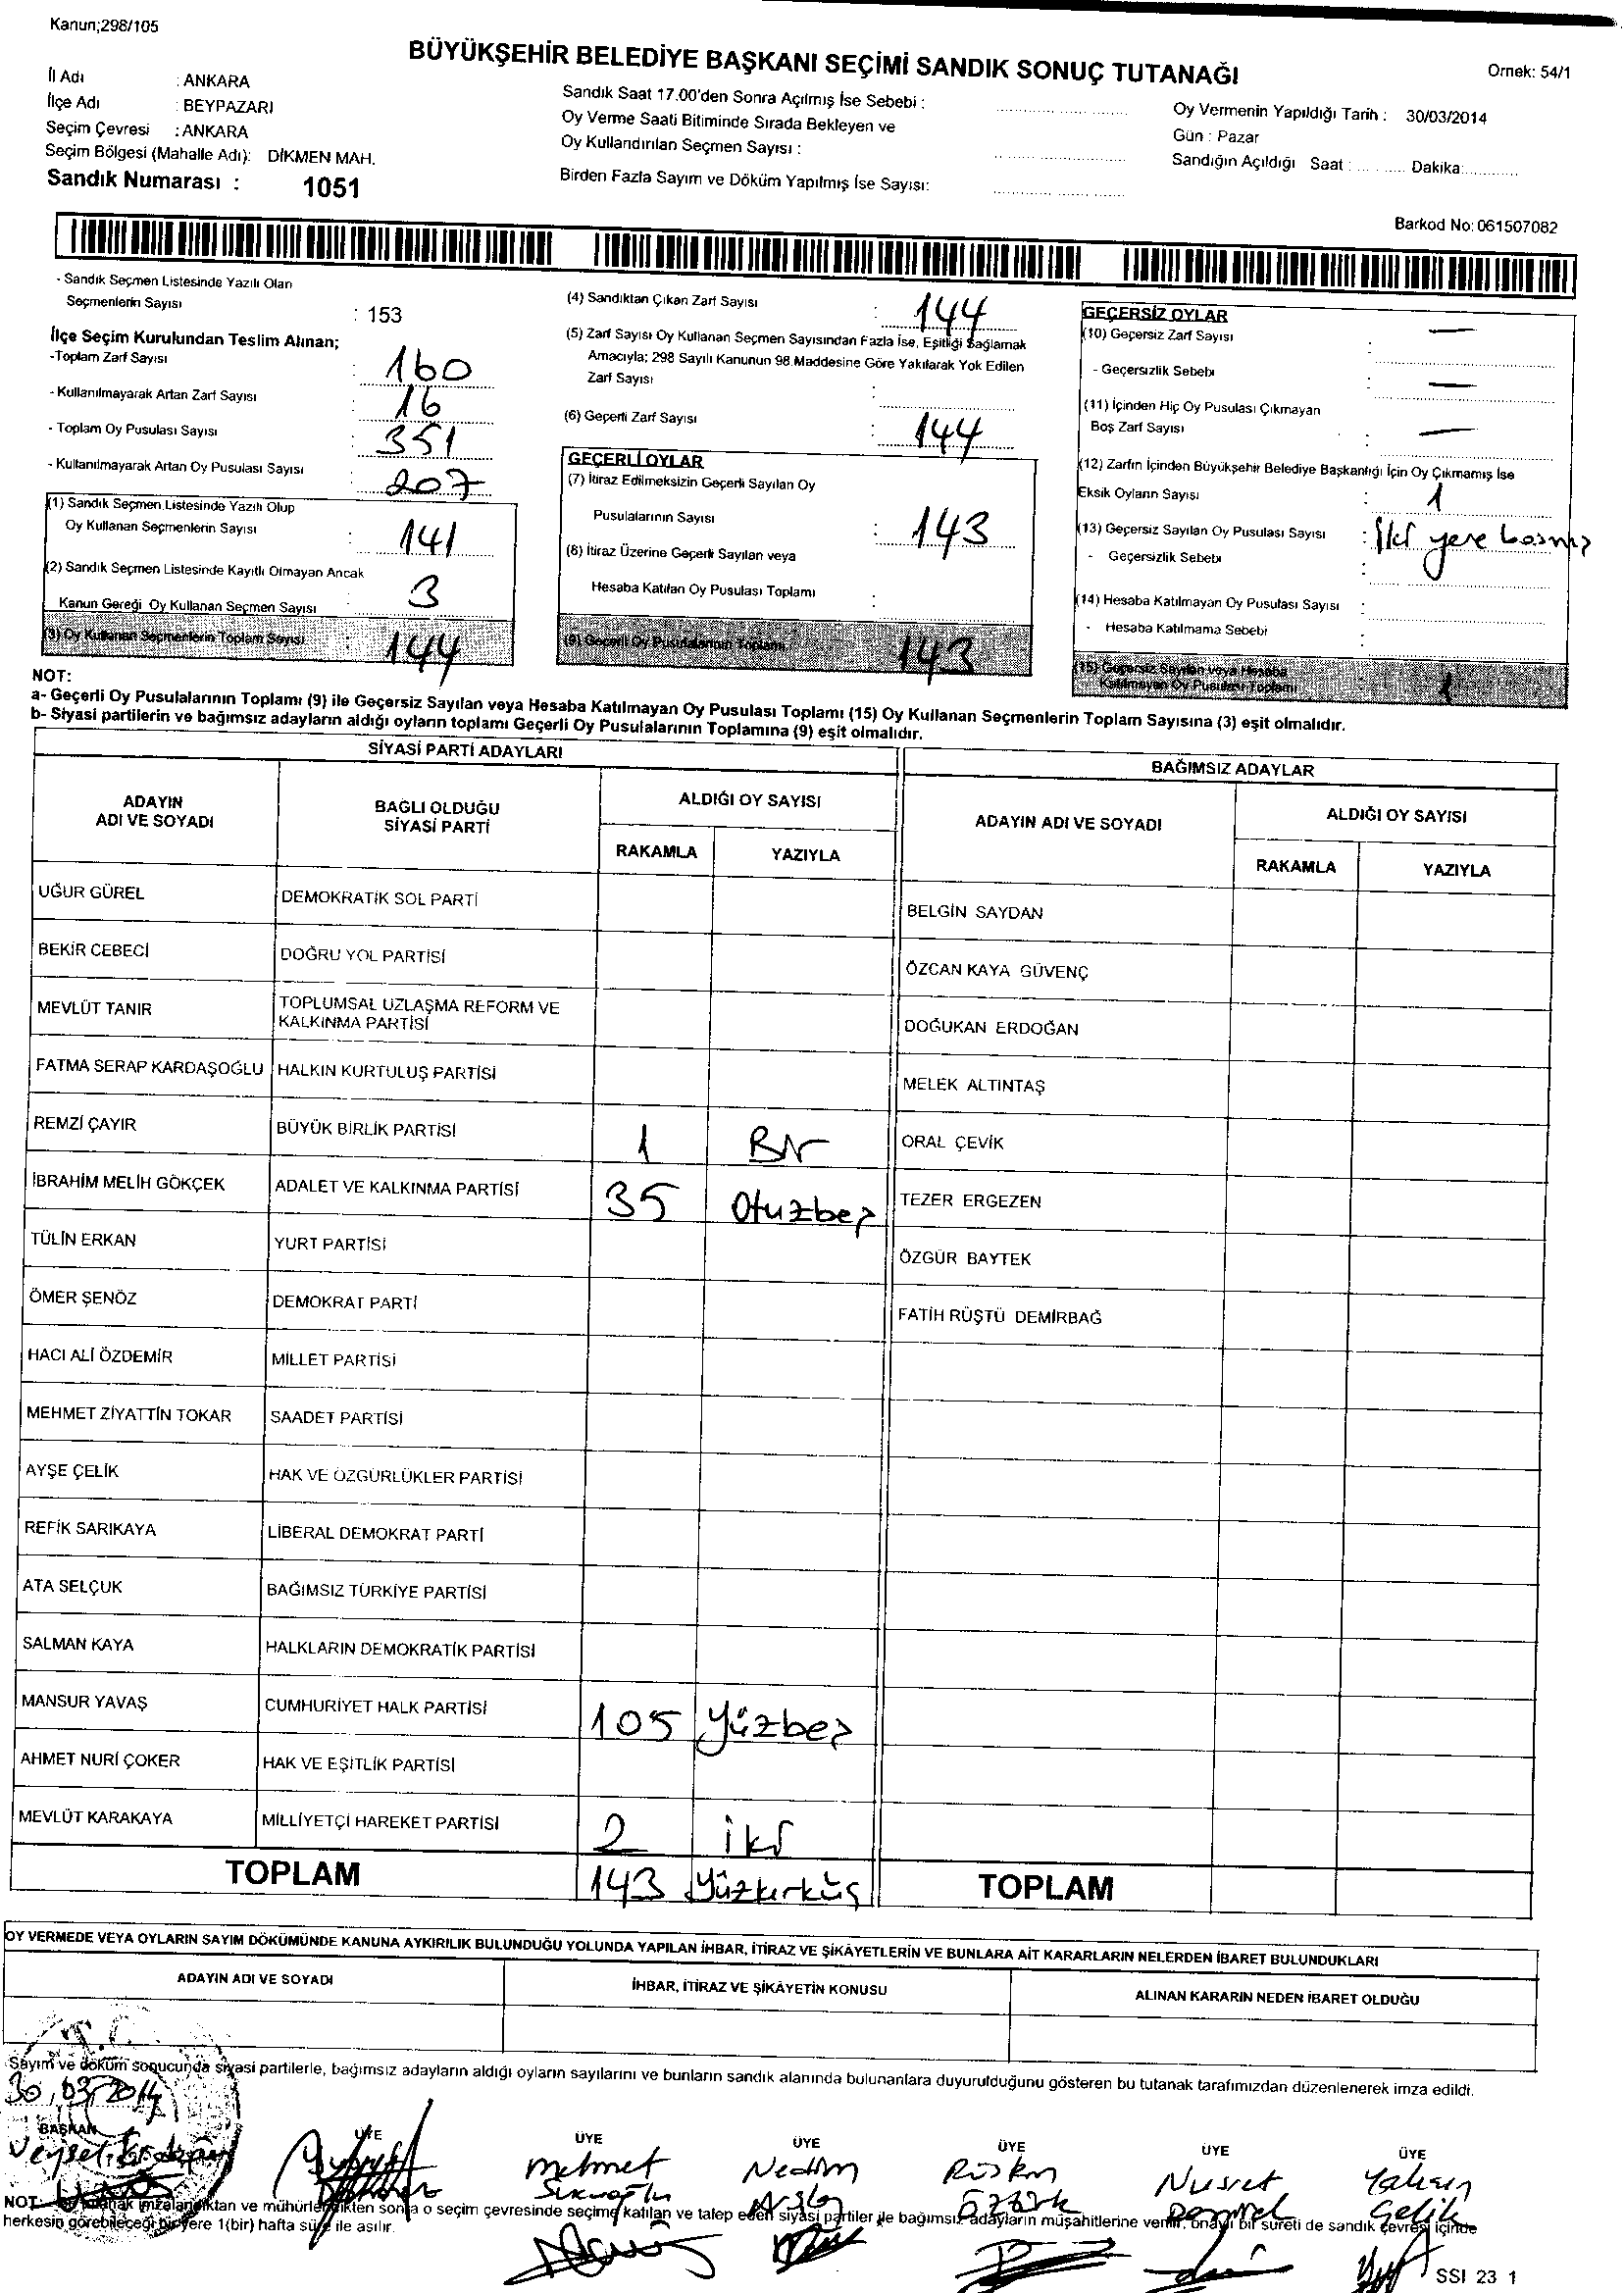 Kanun;298/105
BÜYÜKŞEHİR BELEDİYE BAŞKANI SEÇİMİ SANDIK SONUÇ TUTANAĞI
Ornek: 54/1
İl Adı : ANKARA
İlçe Adı : BEYPAZARI
Seçim Çevresi : ANKARA
Seçim Bölgesi (Mahalle Adı): DİKMEN MAH.
Sandık Numarası : 1051
Sandık Saat 17.00'den Sonra Açılmış İse Sebebi :
Oy Verme Saati Bitiminde Sırada Bekleyen ve
Oy Kullandırılan Seçmen Sayısı :
Birden Fazla Sayım ve Döküm Yapılmış İse Sayısı:
Oy Vermenin Yapıldığı Tarih : 30/03/2014
Gün : Pazar
Sandığın Açıldığı Saat : Dakika:
Barkod No: 061507082
- Sandık Seçmen Listesinde Yazılı Olan
Seçmenlerin Sayısı : 153
İlçe Seçim Kurulundan Teslim Alınan;
-Toplam Zarf Sayısı : 160
- Kullanılmayarak Artan Zarf Sayısı : 16
- Toplam Oy Pusulası Sayısı : 351
- Kullanılmayarak Artan Oy Pusulası Sayısı : 207
(1) Sandık Seçmen Listesinde Yazılı Olup
Oy Kullanan Seçmenlerin Sayısı : 141
(2) Sandık Seçmen Listesinde Kayıtlı Olmayan Ancak
Kanun Gereği Oy Kullanan Seçmen Sayısı : 3
(3) Oy Kullanan Seçmenlerin Toplam Sayısı : 144
(4) Sandıktan Çıkan Zarf Sayısı : 144
(5) Zarf Sayısı Oy Kullanan Seçmen Sayısından Fazla İse, Eşitliği Sağlamak
Amacıyla; 298 Sayılı Kanunun 98.Maddesine Göre Yakılarak Yok Edilen
Zarf Sayısı :
(6) Geçerli Zarf Sayısı : 144
GEÇERLİ OYLAR
(7) İtiraz Edilmeksizin Geçerli Sayılan Oy
Pusulalarının Sayısı : 143
(8) İtiraz Üzerine Geçerli Sayılan veya
Hesaba Katılan Oy Pusulası Toplamı :
(9) Geçerli Oy Pusulalarının Toplamı 143
GEÇERSİZ OYLAR
(10) Geçersiz Zarf Sayısı : —
- Geçersizlik Sebebi : —
(11) İçinden Hiç Oy Pusulası Çıkmayan
Boş Zarf Sayısı : —
(12) Zarfın İçinden Büyükşehir Belediye Başkanlığı İçin Oy Çıkmamış İse
Eksik Oyların Sayısı : 1
(13) Geçersiz Sayılan Oy Pusulası Sayısı : İki yere basmış
- Geçersizlik Sebebi :
(14) Hesaba Katılmayan Oy Pusulası Sayısı :
- Hesaba Katılmama Sebebi :
(15) Geçersiz Sayılan veya Hesaba
Katılmayan Oy Pusulası Toplamı 1
NOT:
a- Geçerli Oy Pusulalarının Toplamı (9) ile Geçersiz Sayılan veya Hesaba Katılmayan Oy Pusulası Toplamı (15) Oy Kullanan Seçmenlerin Toplam Sayısına (3) eşit olmalıdır.
b- Siyasi partilerin ve bağımsız adayların aldığı oyların toplamı Geçerli Oy Pusulalarının Toplamına (9) eşit olmalıdır.
SİYASİ PARTİ ADAYLARI
ADAYIN ADI VE SOYADI
BAĞLI OLDUĞU SİYASİ PARTİ
ALDIĞI OY SAYISI
RAKAMLA YAZIYLA
UĞUR GÜREL DEMOKRATİK SOL PARTİ
BEKİR CEBECİ DOĞRU YOL PARTİSİ
MEVLÜT TANIR TOPLUMSAL UZLAŞMA REFORM VE
KALKINMA PARTİSİ
FATMA SERAP KARDAŞOĞLU HALKIN KURTULUŞ PARTİSİ
REMZİ ÇAYIR BÜYÜK BİRLİK PARTİSİ 1 Bir
İBRAHİM MELİH GÖKÇEK ADALET VE KALKINMA PARTİSİ 35 Otuzbeş
TÜLİN ERKAN YURT PARTİSİ
ÖMER ŞENÖZ DEMOKRAT PARTİ
HACI ALİ ÖZDEMİR MİLLET PARTİSİ
MEHMET ZİYATTİN TOKAR SAADET PARTİSİ
AYŞE ÇELİK HAK VE ÖZGÜRLÜKLER PARTİSİ
REFİK SARIKAYA LİBERAL DEMOKRAT PARTİ
ATA SELÇUK BAĞIMSIZ TÜRKİYE PARTİSİ
SALMAN KAYA HALKLARIN DEMOKRATİK PARTİSİ
MANSUR YAVAŞ CUMHURİYET HALK PARTİSİ 105 Yüzbeş
AHMET NURİ ÇOKER HAK VE EŞİTLİK PARTİSİ
MEVLÜT KARAKAYA MİLLİYETÇİ HAREKET PARTİSİ 2 iki
TOPLAM 143 Yüzkırküç
BAĞIMSIZ ADAYLAR
ADAYIN ADI VE SOYADI
ALDIĞI OY SAYISI
RAKAMLA YAZIYLA
BELGİN SAYDAN
ÖZCAN KAYA GÜVENÇ
DOĞUKAN ERDOĞAN
MELEK ALTINTAŞ
ORAL ÇEVİK
TEZER ERGEZEN
ÖZGÜR BAYTEK
FATİH RÜŞTÜ DEMİRBAĞ
TOPLAM
OY VERMEDE VEYA OYLARIN SAYIM DÖKÜMÜNDE KANUNA AYKIRILIK BULUNDUĞU YOLUNDA YAPILAN İHBAR, İTİRAZ VE ŞİKAYETLERİN VE BUNLARA AİT KARARLARIN NELERDEN İBARET BULUNDUKLARI
ADAYIN ADI VE SOYADI
İHBAR, İTİRAZ VE ŞİKAYETİN KONUSU
ALINAN KARARIN NEDEN İBARET OLDUĞU
T.C.
Sayım ve döküm sonucunda siyasi partilerle, bağımsız adayların aldığı oyların sayılarını ve bunların sandık alanında bulunanlara duyurulduğunu gösteren bu tutanak tarafımızdan düzenlenerek imza edildi.
30.03.2014
BAŞKAN ÜYE ÜYE ÜYE ÜYE ÜYE ÜYE
Veysel Mehmet Nedim Nusret Yalçın
Arslan Öztürk Demirel Çelik
NOT: Bu tutanak imzalandıktan ve mühürlendikten sonra o seçim çevresinde seçime katılan ve talep eden siyasi partiler ile bağımsız adayların müşahitlerine verilir, onaylı bir sureti de sandık çevresi içinde
herkesin görebileceği bir yere 1(bir) hafta süre ile asılır.
SSI 23 1